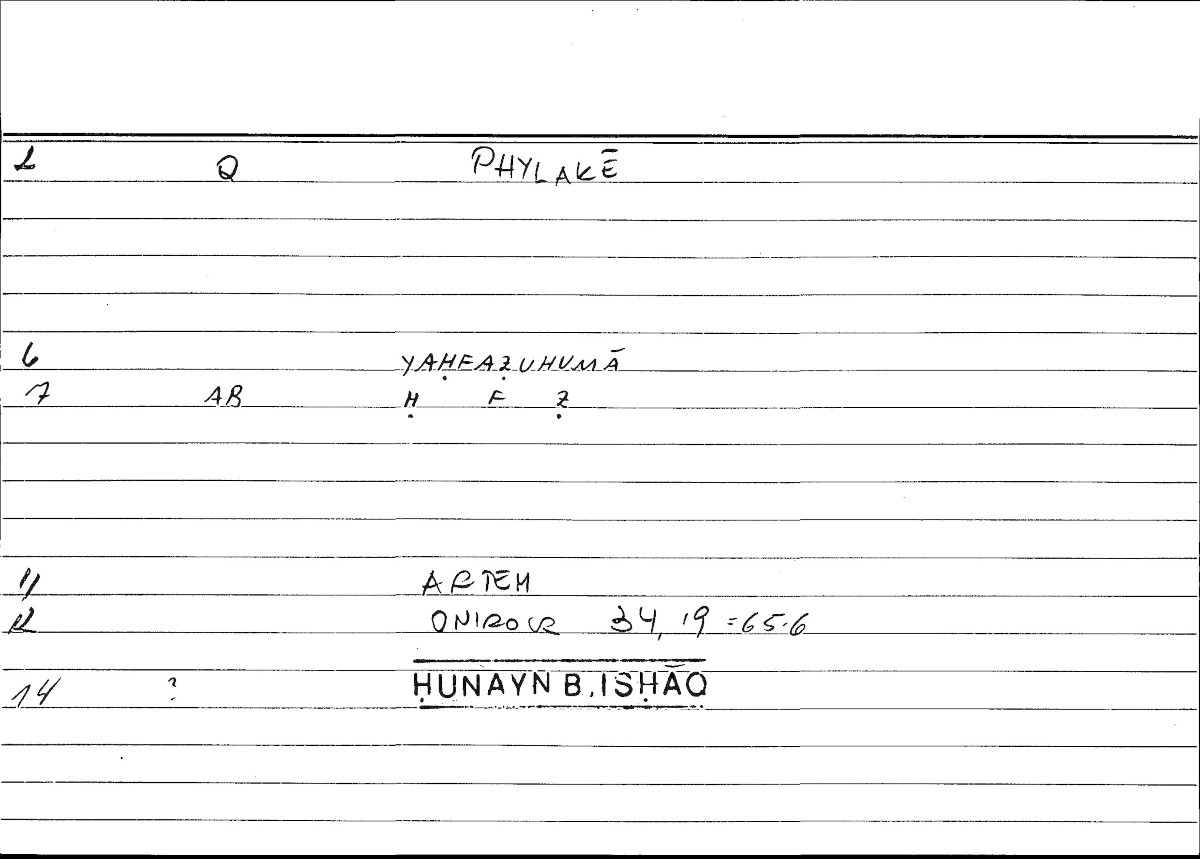 1 Q PHYLAKĒ
6 YAḤFAẒUHUMĀ
7 AB Ḥ F Ẓ
11 ARTEM
12 ONIROCR 34, 19 = 65.6
14 ? ḤUNAYN B. ISḤĀQ